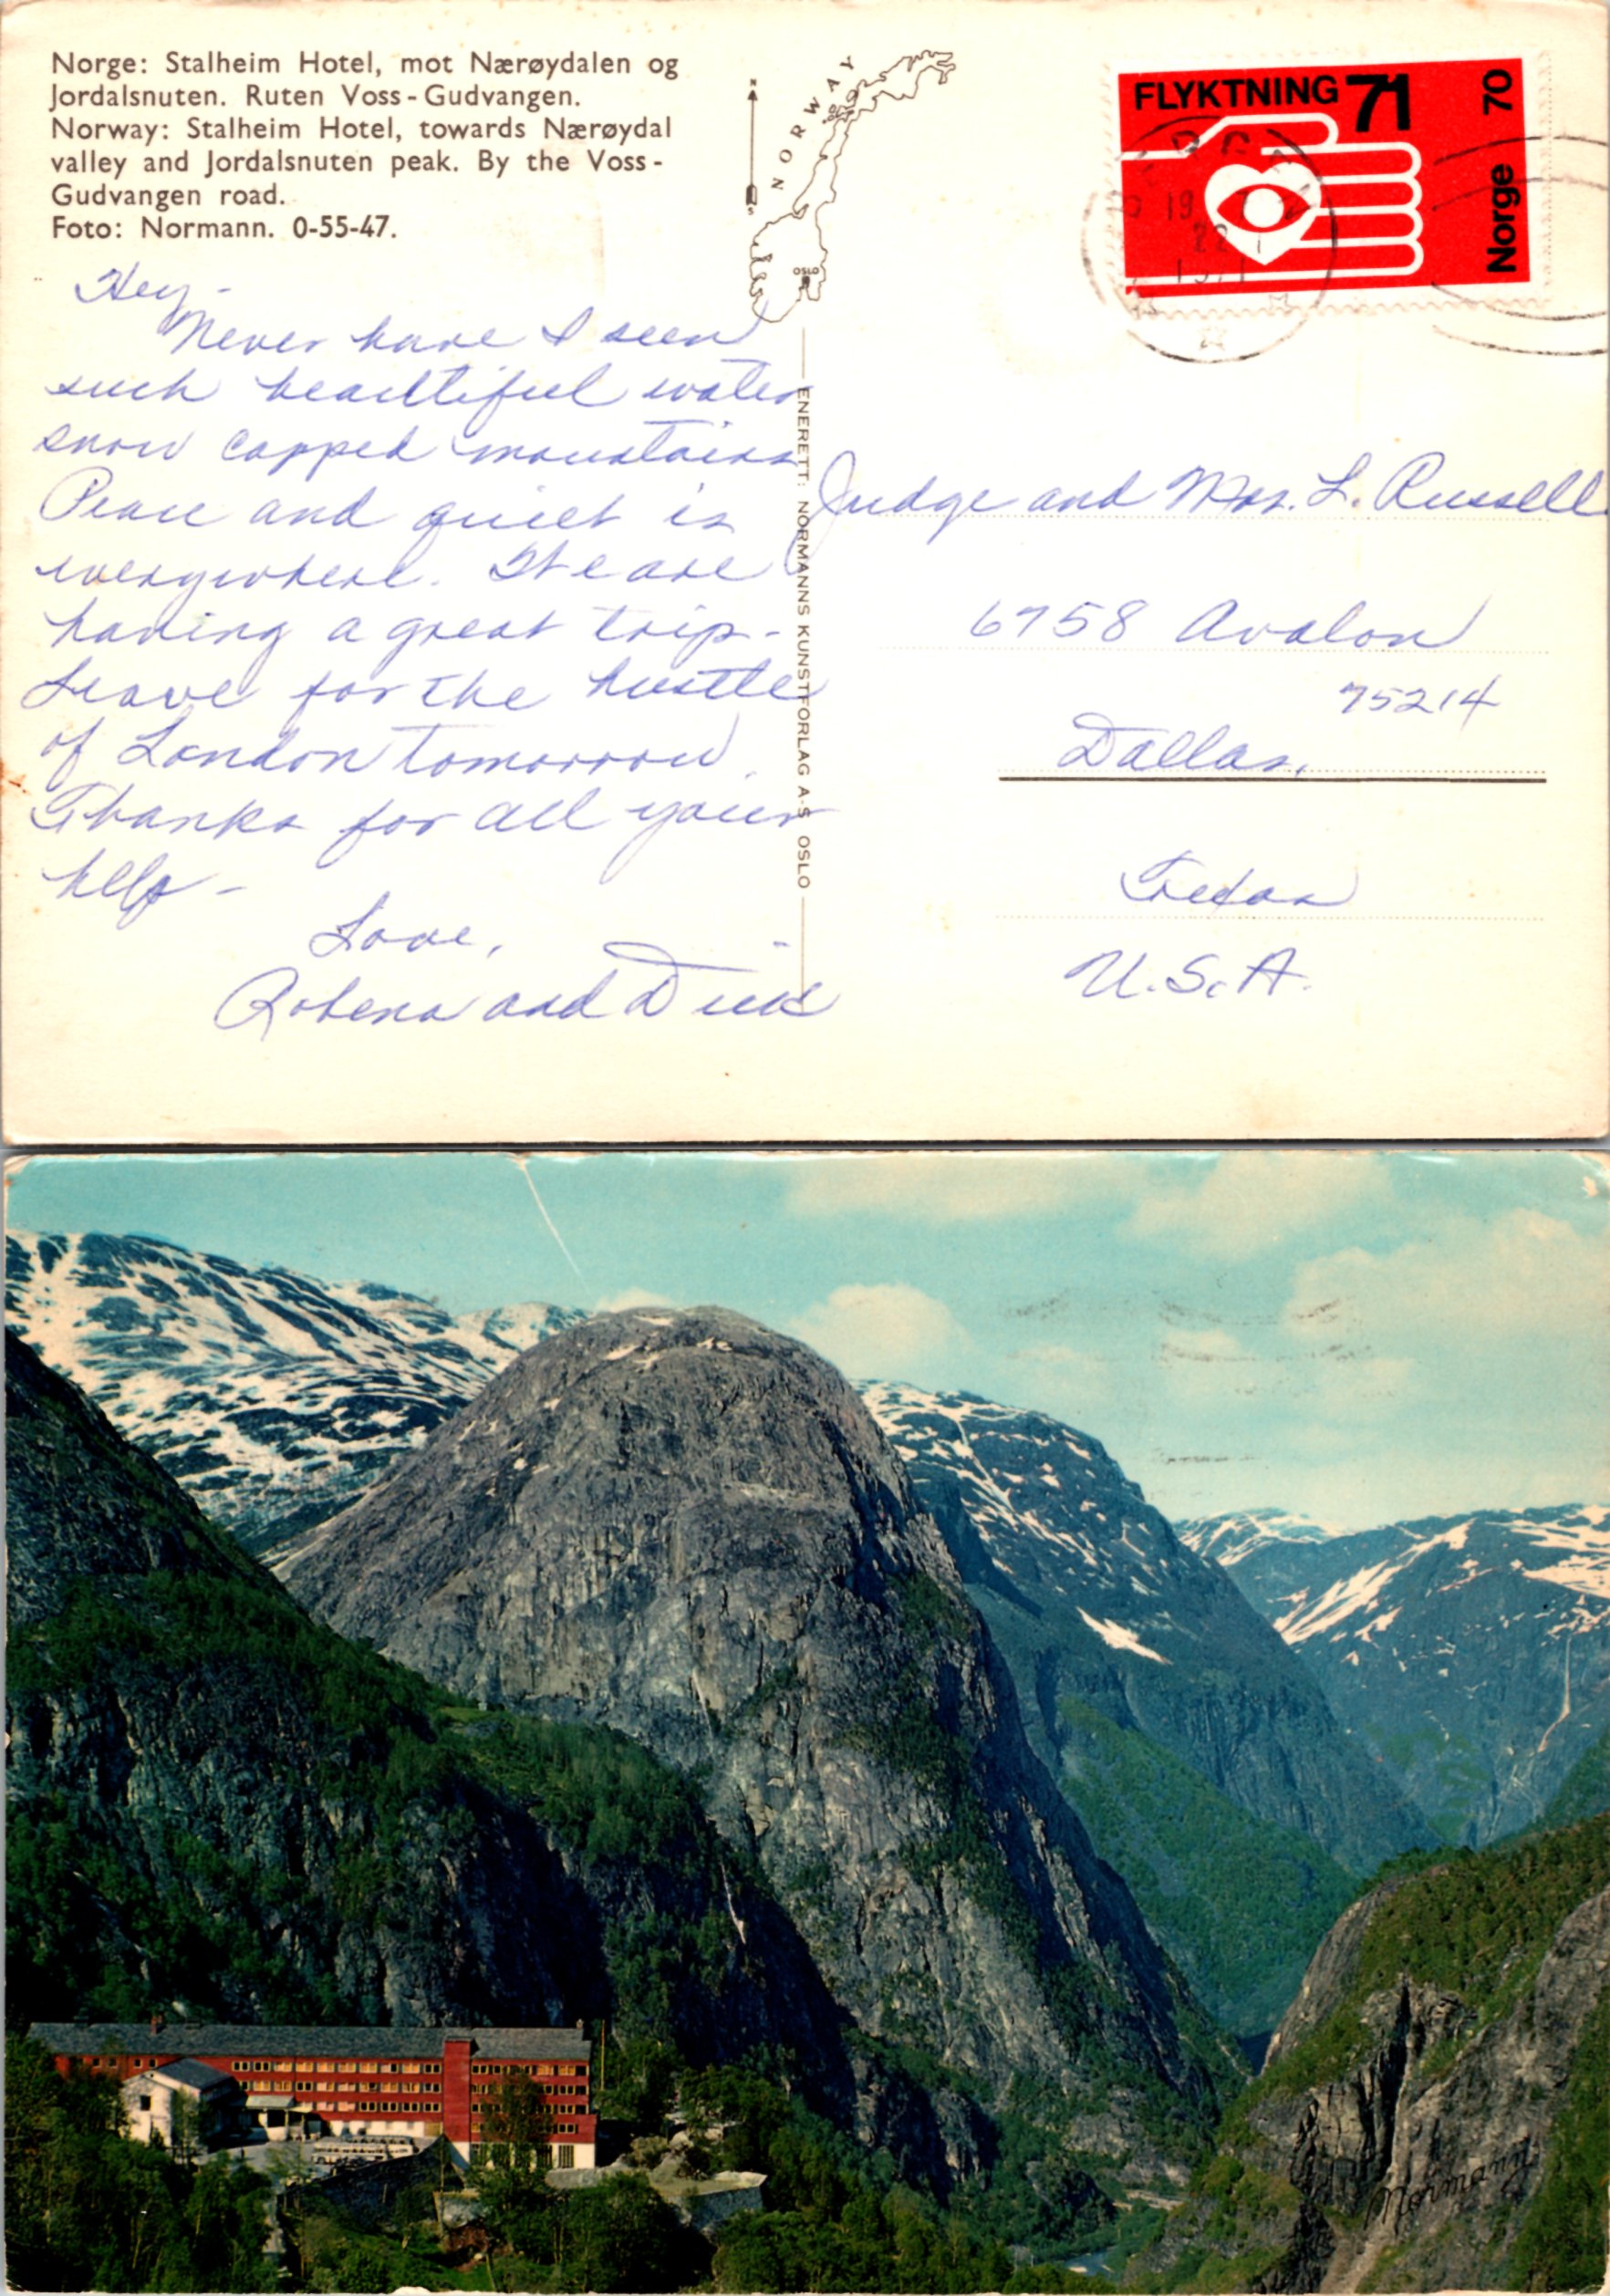 Norge: Stalheim Hotel, mot Nærøydalen og
Jordalsnuten. Ruten Voss-Gudvangen.
Norway: Stalheim Hotel, towards Nærøydal
valley and Jordalsnuten peak. By the Voss-
Gudvangen road.
Foto: Normann. 0-55-47.
N
NORWAY
S
OSLO
FLYKTNING 71
70
Norge
19
22
1971
Hey-
Never have I seen
such beautiful water
snow capped mountains
Peace and quiet is
everywhere. We are
having a great trip-
Leave for the hustle
of London tomorrow.
Thanks for all your
help-
Love,
Robena and Dick
ENERETT: NORMANNS KUNSTFORLAG A-S OSLO
Judge and Mrs. L. Russell
6758 Avalon
75214
Dallas,
Texas
U.S.A.
Normann